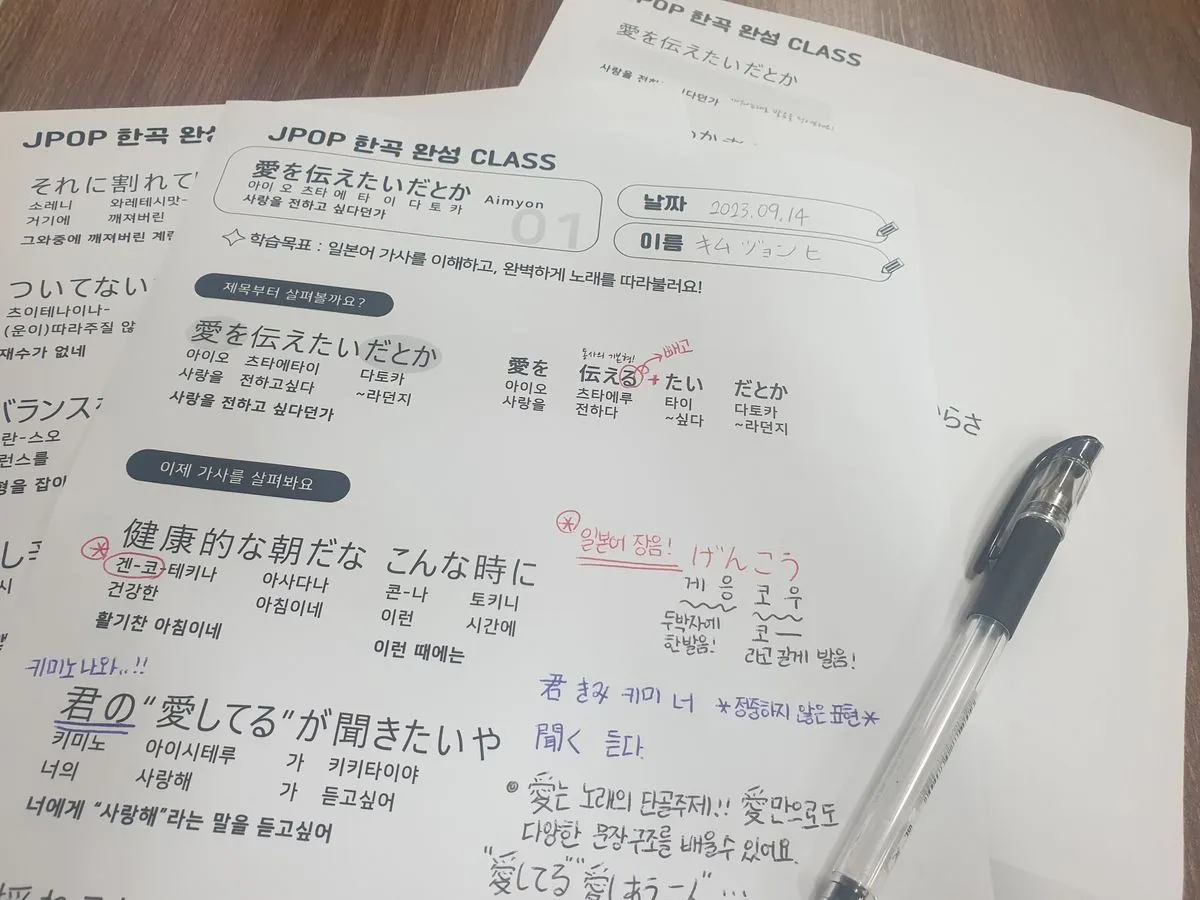 JPOP 한곡 완성 CLASS
愛を伝えたいだとか
사랑을 전하
JPOP 한곡 완성
それに割れて
소레니 와레테시맛-
거기에 깨져버린
그와중에 깨져버린 계란
ついてない
츠이테나이나-
(운이)따라주질 않
재수가 없네
バランスを
란-스오
런스를
JPOP 한곡 완성 CLASS
愛を伝えたいだとか Aimyon
아이 오 츠타 에 타 이 다 토 카
사랑을 전하고 싶다던가
01
날짜 2023.09.14
이름 キム ヅョン ヒ
학습목표 : 일본어 가사를 이해하고, 완벽하게 노래를 따라불러요!
제목부터 살펴볼까요?
愛を伝えたいだとか
아이오 츠타에타이 다토카
사랑을 전하고싶다 ~라던지
사랑을 전하고 싶다던가
동사의 기본형! 빼고
愛を 伝える + たい だとか
아이오 츠타에루 타이 다토카
사랑을 전하다 ~싶다 ~라던지
이제 가사를 살펴봐요
健康的な朝だな こんな時に
겐-코-테키나 아사다나 콘-나 토키니
건강한 아침이네 이런 시간에
활기찬 아침이네 이런 때에는
일본어 장음! げんこう
게 응 코 우
두박자에 한발음! 코ー
라고 길게 발음!
키미노 나와..!!
君の“愛してる“が聞きたいや
키미노 아이시테루 가 키키타이야
너의 사랑해 가 듣고싶어
너에게 “사랑해”라는 말을 듣고싶어
君 きみ 키미 너 *정중하지 않은 표현*
聞く 듣다.
愛는 노래의 단골주제!! 愛만으로도
다양한 문장구조를 배울수 있어요.
"愛してる" "愛しあう一ん" ...
からさ